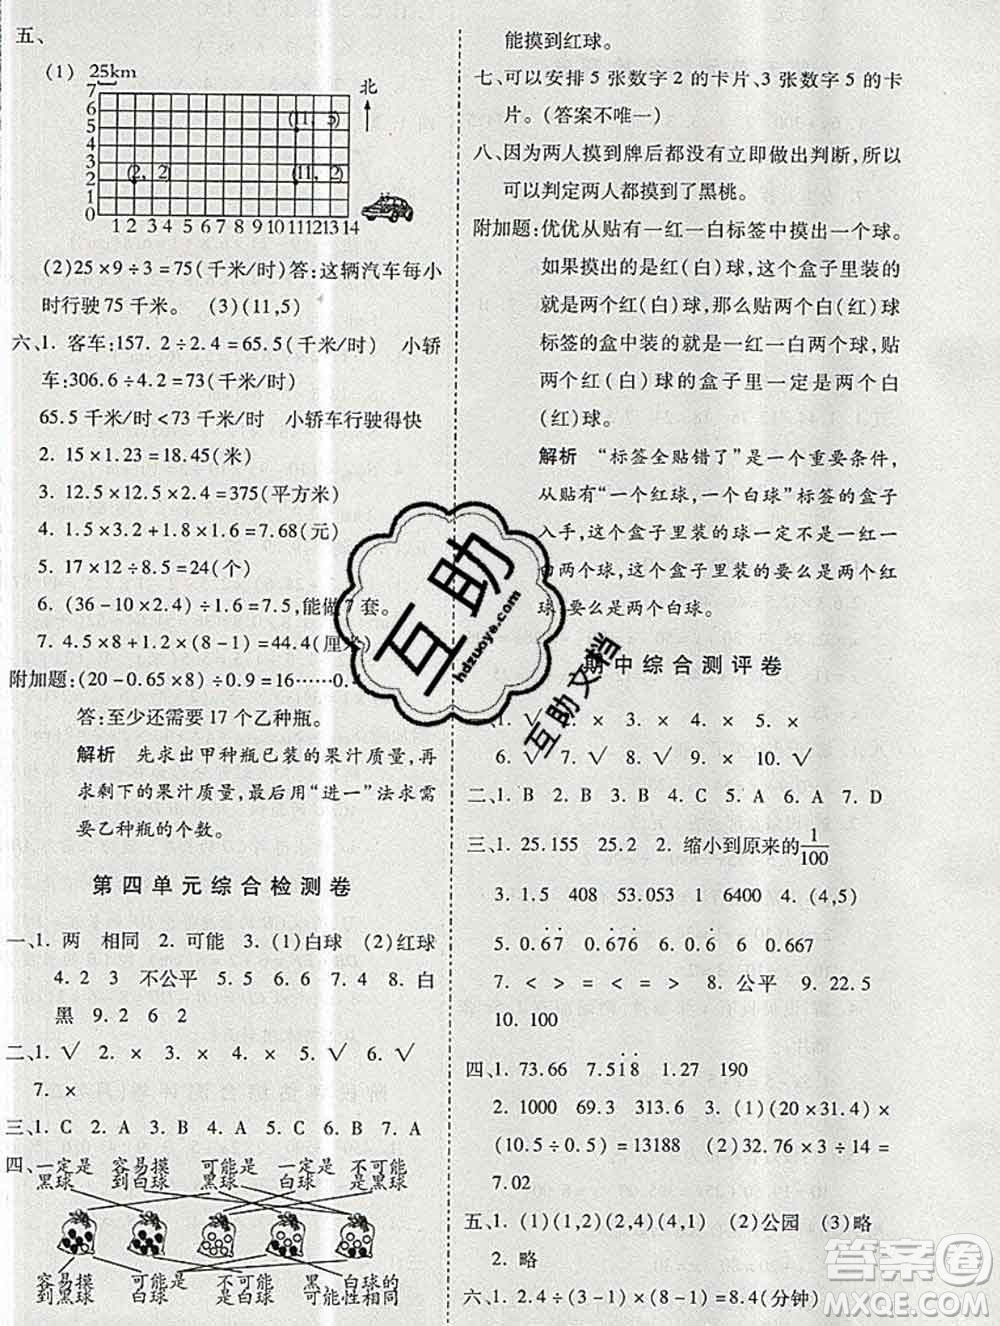 五、
(1) 25km
7
6
5
4
3
2
1
0
(11, 5)
(2, 2)
(11, 2)
北
1 2 3 4 5 6 7 8 9 10 11 12 13 14
(2)25×9÷3=75(千米/时)答:这辆汽车每小
时行驶75千米。 (3)(11,5)
六、1. 客车:157.2÷2.4=65.5(千米/时) 小轿
车:306.6÷4.2=73(千米/时)
65.5千米/时<73千米/时 小轿车行驶得快
2. 15×1.23=18.45(米)
3. 12.5×12.5×2.4=375(平方米)
4. 1.5×3.2+1.8×1.6=7.68(元)
5. 17×12÷8.5=24(个)
6. (36-10×2.4)÷1.6=7.5,能做7套。
7. 4.5×8+1.2×(8-1)=44.4(厘米)
附加题:(20-0.65×8)÷0.9=16……0.
答:至少还需要17个乙种瓶。
解析 先求出甲种瓶已装的果汁质量,再
求剩下的果汁质量,最后用“进一”法求需
要乙种瓶的个数。
第四单元综合检测卷
一、1. 两 相同 2. 可能 3. (1)白球 (2)红球
4. 2 3 不公平 5. 5 6. 7 4 8. 白
黑 9. 2 6 2
二、1. √ 2. × 3. × 4. × 5. √ 6. √
7. ×
三、1. C 2. A 3. B 4. C 5. B 6. B 7. A
四、一定是黑球 容易摸到白球 可能是黑球 一定是白球 不可能是黑球
容易摸到黑球 可能是白球 不可能是白球 黑、白球的可能性相同
能摸到红球。
七、可以安排5张数字2的卡片,3张数字5的卡
片。(答案不唯一)
八、因为两人摸到牌后都没有立即做出判断,所以
可以判定两人都摸到了黑桃。
附加题:优优从贴有一红一白标签中摸出一个球。
如果摸出的是红(白)球,这个盒子里装的
就是两个红(白)球,那么贴两个白(红)球
标签的盒中装的就是一红一白两个球,贴
两个红(白)球的盒子里一定是两个白
(红)球。
解析 “标签全贴错了”是一个重要条件,
从贴的“一个红球,一个白球”标签的盒子
入手,这个盒子里装的球一定不是一红一
白两个球,这个盒子里装的要么是两个红
球,要么是两个白球。
期中综合测评卷
一、1. √ 2. × 3. × 4. × 5. ×
6. × 7. √ 8. √ 9. × 10. √
二、1. B 2. B 3. B 4. C 5. A 6. A 7. D
三、1. 25.155 25.2 2. 缩小到原来的1/100
3. 1.5 408 53.053 1 6400 4. (4,5)
5. 0.6̇7̇ 0.67̇6̇ 6. 0.6̇ 6 0.667
7. < < = < = > 8. 公平 9. 22.5
10. 100
四、1. 73.66 7.5̇18̇ 1.27 190
2. 1000 69.3 314.6 3. (1)(20×31.4)×
(10.5÷0.5)=13188 (2)32.76×3÷14=
7.02
五、1. (1)(1,2)(2,4)(4,1) (2)公园 (3)略
2. 略
六、1. 2.4÷(3-1)×(8-1)=8.4(分钟)
互助
hdzuoye.com
互助文档
答案圈
MXQE.COM